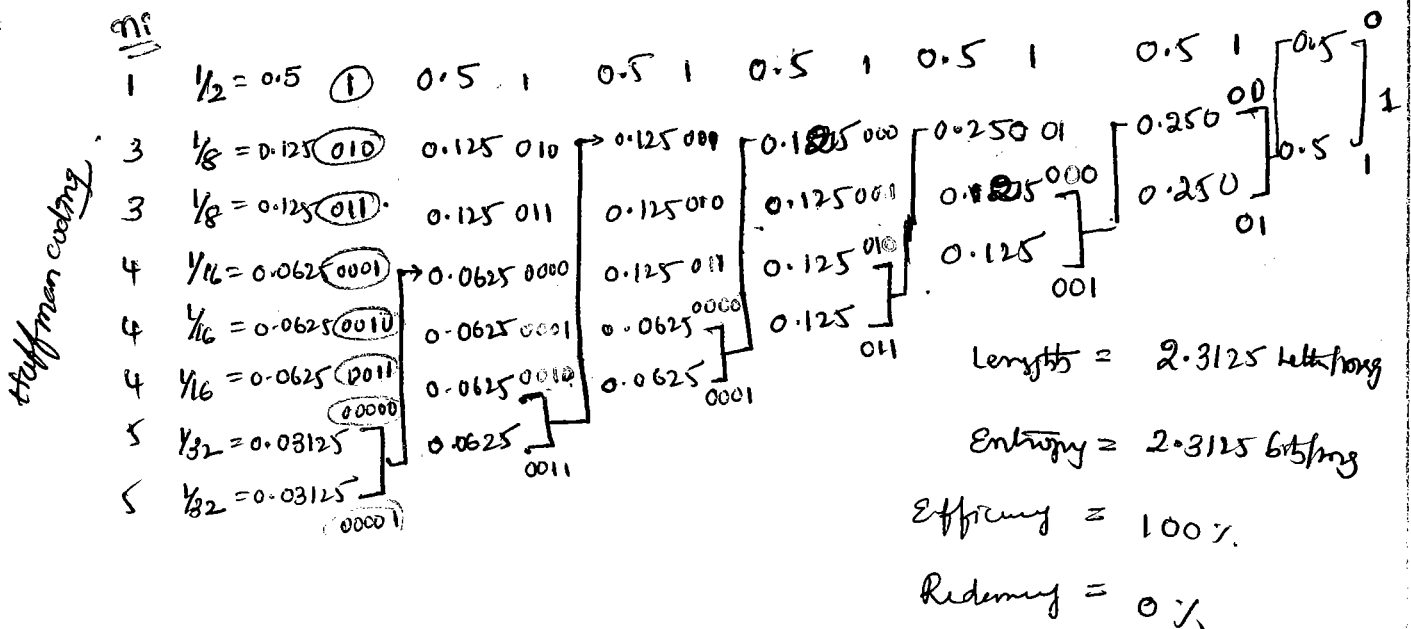 ni
1 1/2 = 0.5 1 0.5 1 0.5 1 0.5 1 0.5 1 0.5 1 0.5 0
3 1/8 = 0.125 010 0.125 010 0.125 001 0.125 000 0.250 01 0.250 00 0.5 1 1
3 1/8 = 0.125 011 0.125 011 0.125 010 0.125 001 0.125 000 0.250 01
4 1/16 = 0.0625 0001 0.0625 0000 0.125 011 0.125 010 0.125 001
4 1/16 = 0.0625 0010 0.0625 0001 0.0625 0000 0.125 011
4 1/16 = 0.0625 0011 0.0625 0010 0.0625 0001
5 1/32 = 0.03125 00000 0.0625 0011
5 1/32 = 0.03125 00001
Huffman coding
= 2.3125
Entropy = 2.3125
= 100 %
= 0 %